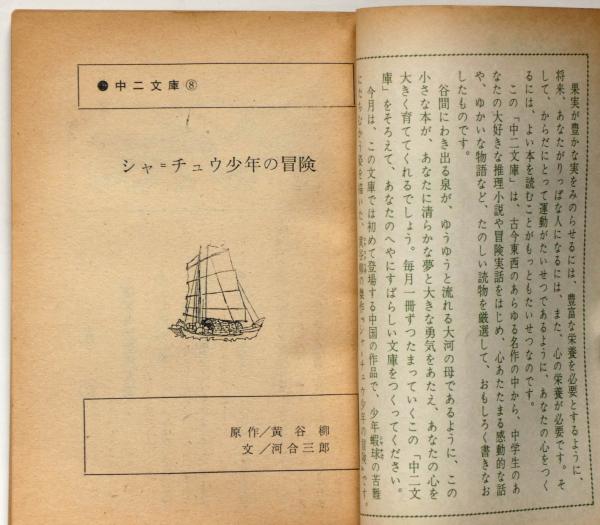 中二文庫⑧
シャ=チュウ少年の冒険
原作/黄谷柳
文/河合三郎
果実が豊かな実をみのらせるには、豊富な栄養を必要とするように、
将来、あなたがりっぱな人になるには、また、心の栄養が必要です。そ
して、からだにとって運動がたいせつであるように、あなたの心をつく
るには、よい本を読むことがもっともたいせつなのです。
この「中二文庫」は、古今東西のあらゆる名作の中から、中学生のあ
なたの大好きな推理小説や冒険実話をはじめ、心あたたまる感動的な話
や、ゆかいな物語など、たのしい読物を厳選して、おもしろく書きなお
したものです。
谷間にわき出る泉が、ゆうゆうと流れる大河の母であるように、この
小さな本が、あなたに清らかな夢と大きな勇気をあたえ、あなたの心を
大きく育ててくれるでしょう。毎月一冊ずつたまっていくこの「中二文
庫」をそろえて、あなたのへやにすばらしい文庫をつくってください。
今月は、この文庫では初めて登場する中国の作品で、少年蝦球の苦難
にたちむかう姿を描いた、黄谷柳の傑作『シャ=チュウ少年の冒険』です。